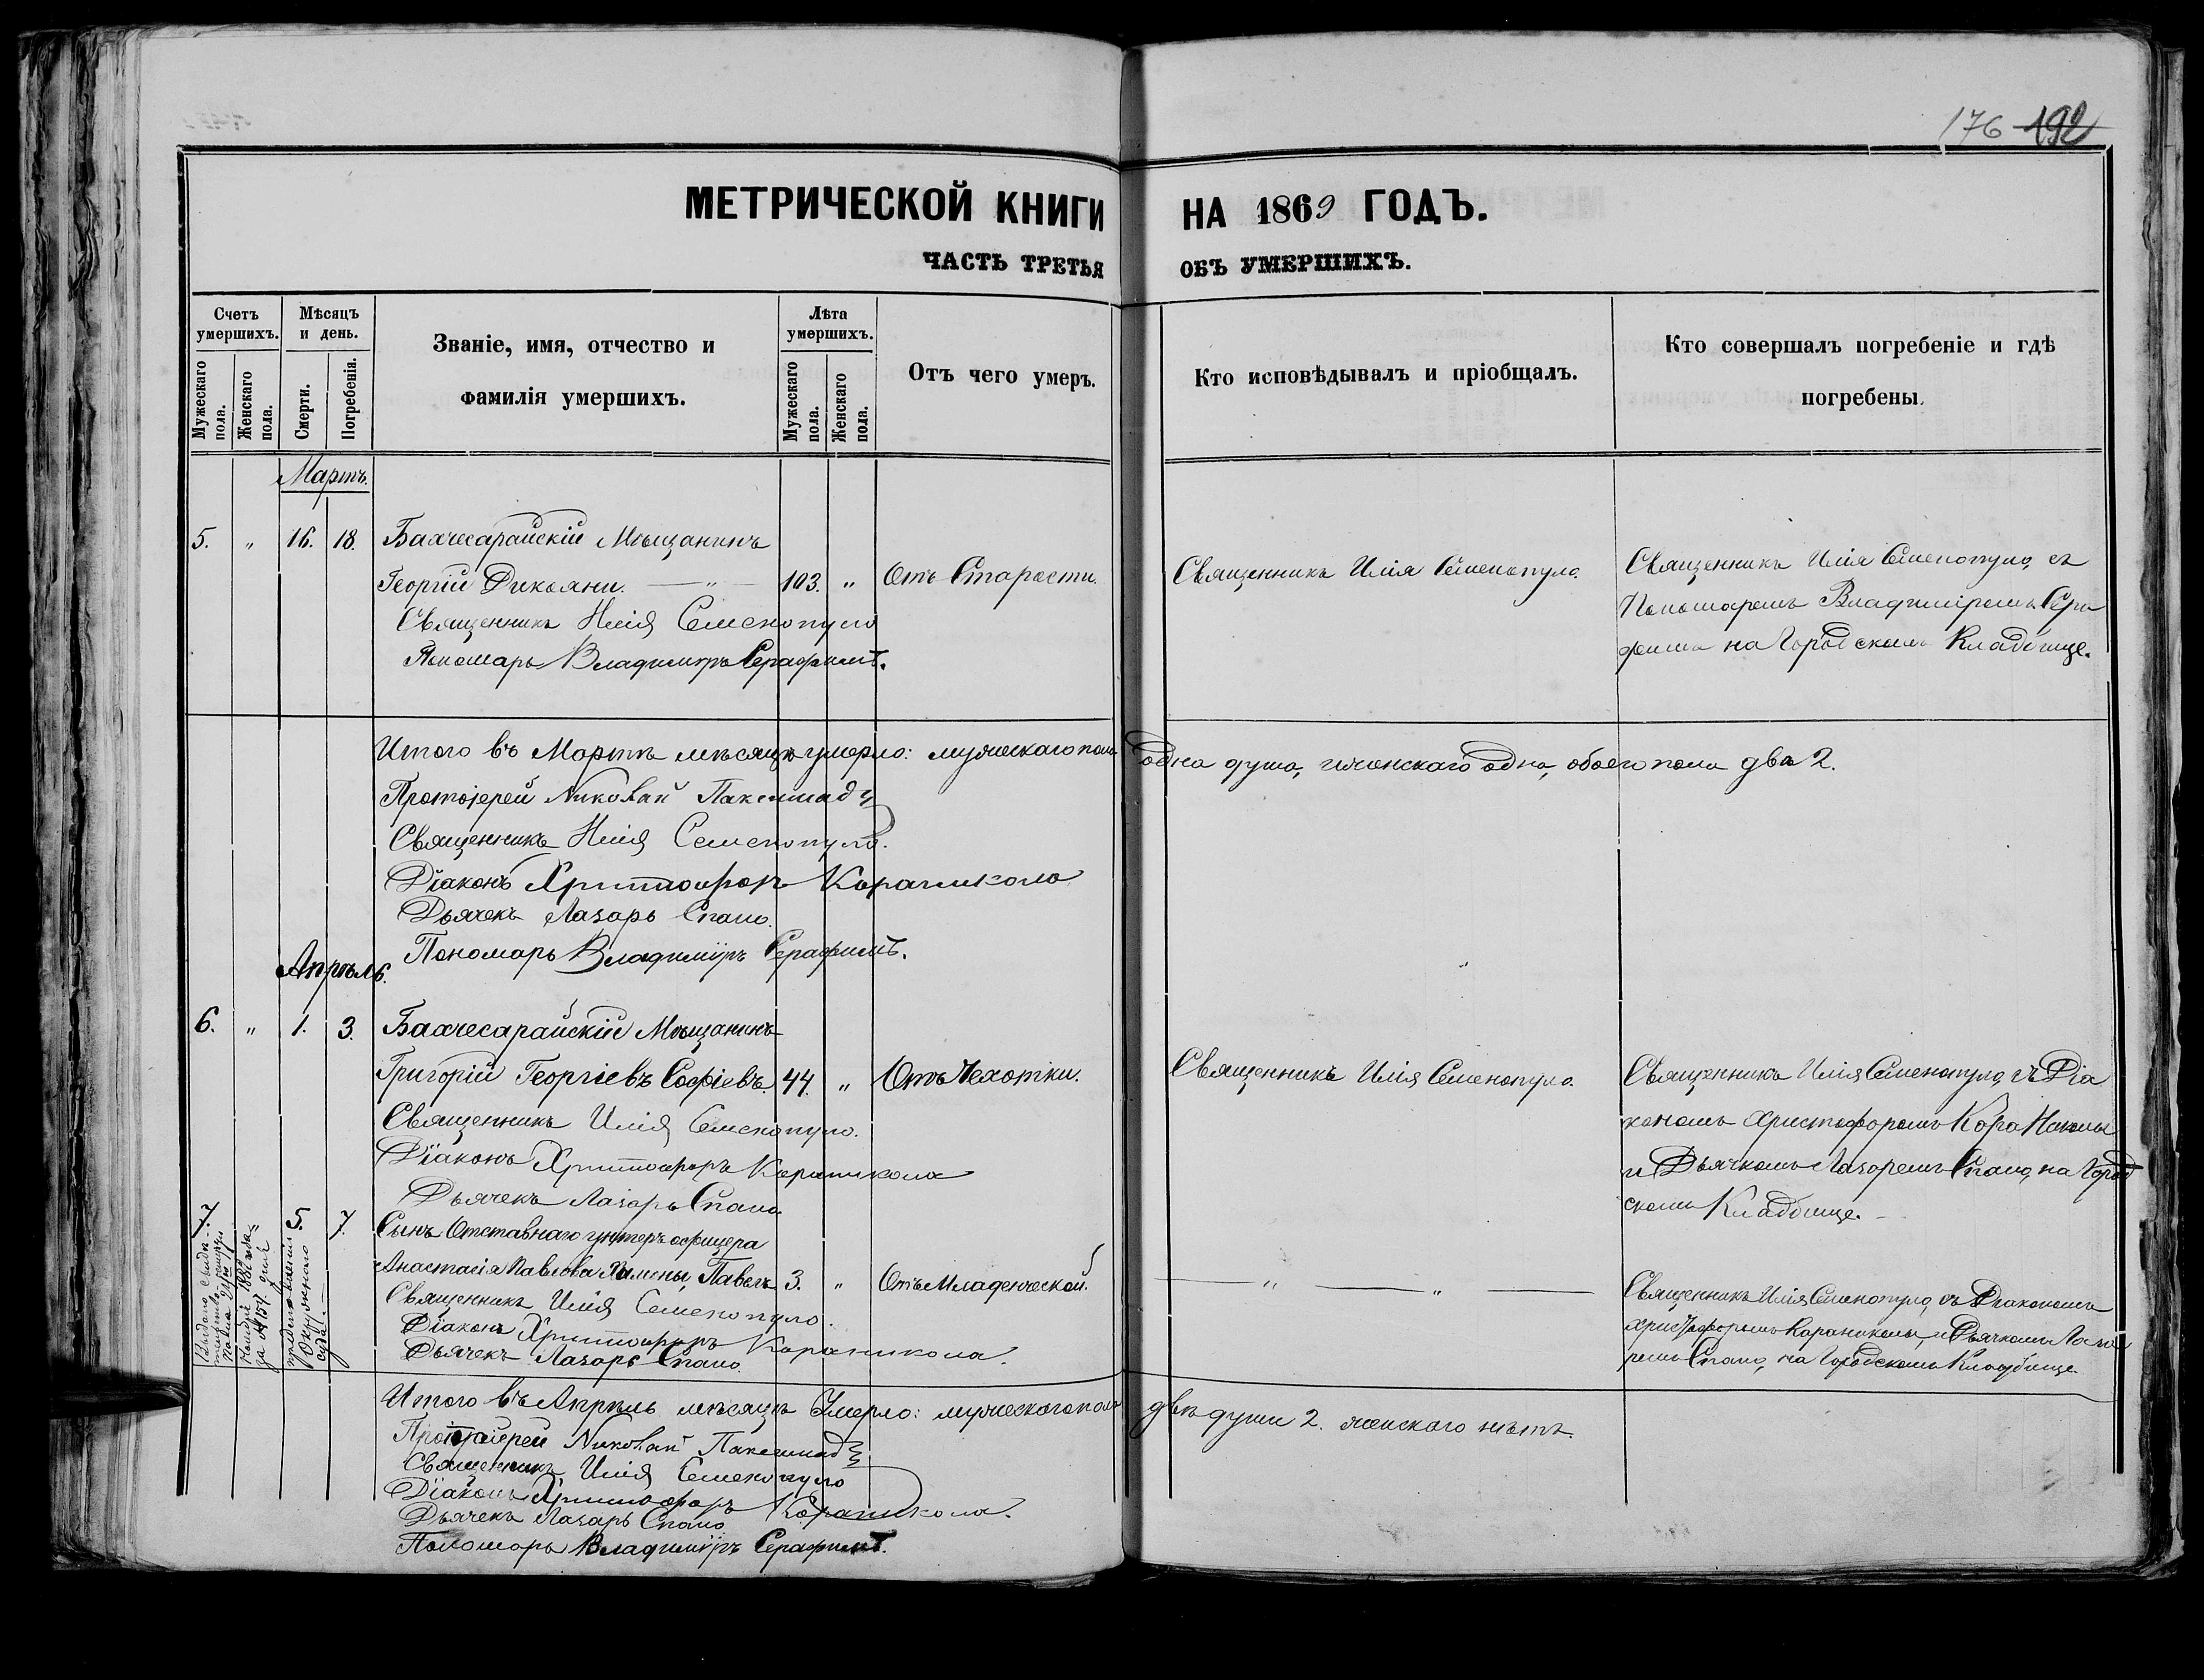 176 192
МЕТРИЧЕСКОЙ КНИГИ НА 1869 ГОДЪ.
ЧАСТЬ ТРЕТЬЯ ОБЪ УМЕРШИХЪ.
Счетъ умершихъ.
Мужескаго пола.
Женскаго пола.
Мѣсяцъ и день.
Смерти.
Погребенія.
Званіе, имя, отчество и
фамилія умершихъ.
Лѣта умершихъ.
Мужескаго пола.
Женскаго пола.
Отъ чего умеръ.
Кто исповѣдывалъ и пріобщалъ.
Кто совершалъ погребеніе и гдѣ
погребены.
Мартъ.
5. " 16. 18. Бахчесарайскій Мѣщанинъ
Георгій Дикьяни. — " — 103. " Отъ Старости.
Священникъ Илія Семенопуло
Пономарь Владимиръ Серафимъ.
Священникъ Илія Семенопуло.
Священникъ Илія Семенопуло, съ
Пономаремъ Владиміромъ Сера
фимъ на Городскомъ Кладбище.
Итого въ Мартѣ мѣсяцѣ умерло: мужескаго пола одна душа, женскаго одна, обоего пола два 2.
Протоіерей Николай
Священникъ Илія Семенопуло.
Діаконъ Христофоръ Караникола
Дьячекъ Лазарь Спано.
Пономарь Владиміръ Серафимъ.
Апрѣль.
6. " 1. 3. Бахчесарайскій Мѣщанинъ
Григорій Георгіевъ Софіевъ. 44. " Отъ Чахотки.
Священникъ Илія Семенопуло.
Діаконъ Христофоръ Караникола
Дьячекъ Лазарь Спано
Священникъ Илія Семенопуло.
Священникъ Илія Семенопуло, съ Діа
кономъ Христофоромъ Кара Николы
и Дьячкомъ Лазаремъ Спано, на Город
скомъ Кладбище.
7. " 5. 7. Сынъ Отставнаго унтеръ офицера
Анастасія Павлова Павелъ 3. " Отъ Младенческой.
Священникъ Илія Семенопуло.
Діаконъ Христофоръ Караникола.
Дьячекъ Лазарь Спано
— " — " —
Священникъ Илія Семенопуло, съ Діакономъ
Христофоромъ Караниколы, и Дьячкомъ Лаза
ремъ Спано, на Городскомъ Кладбище.
Окружнаго
суда.
Итого въ Апрѣль мѣсяцѣ Умерло: мужескаго пола двѣ души 2. женскаго нѣтъ.
Протоіерей Николай
Священникъ Илія Семенопуло
Діаконъ Христофоръ Караникола.
Дьячекъ Лазарь Спано
Пономарь Владиміръ Серафимъ.